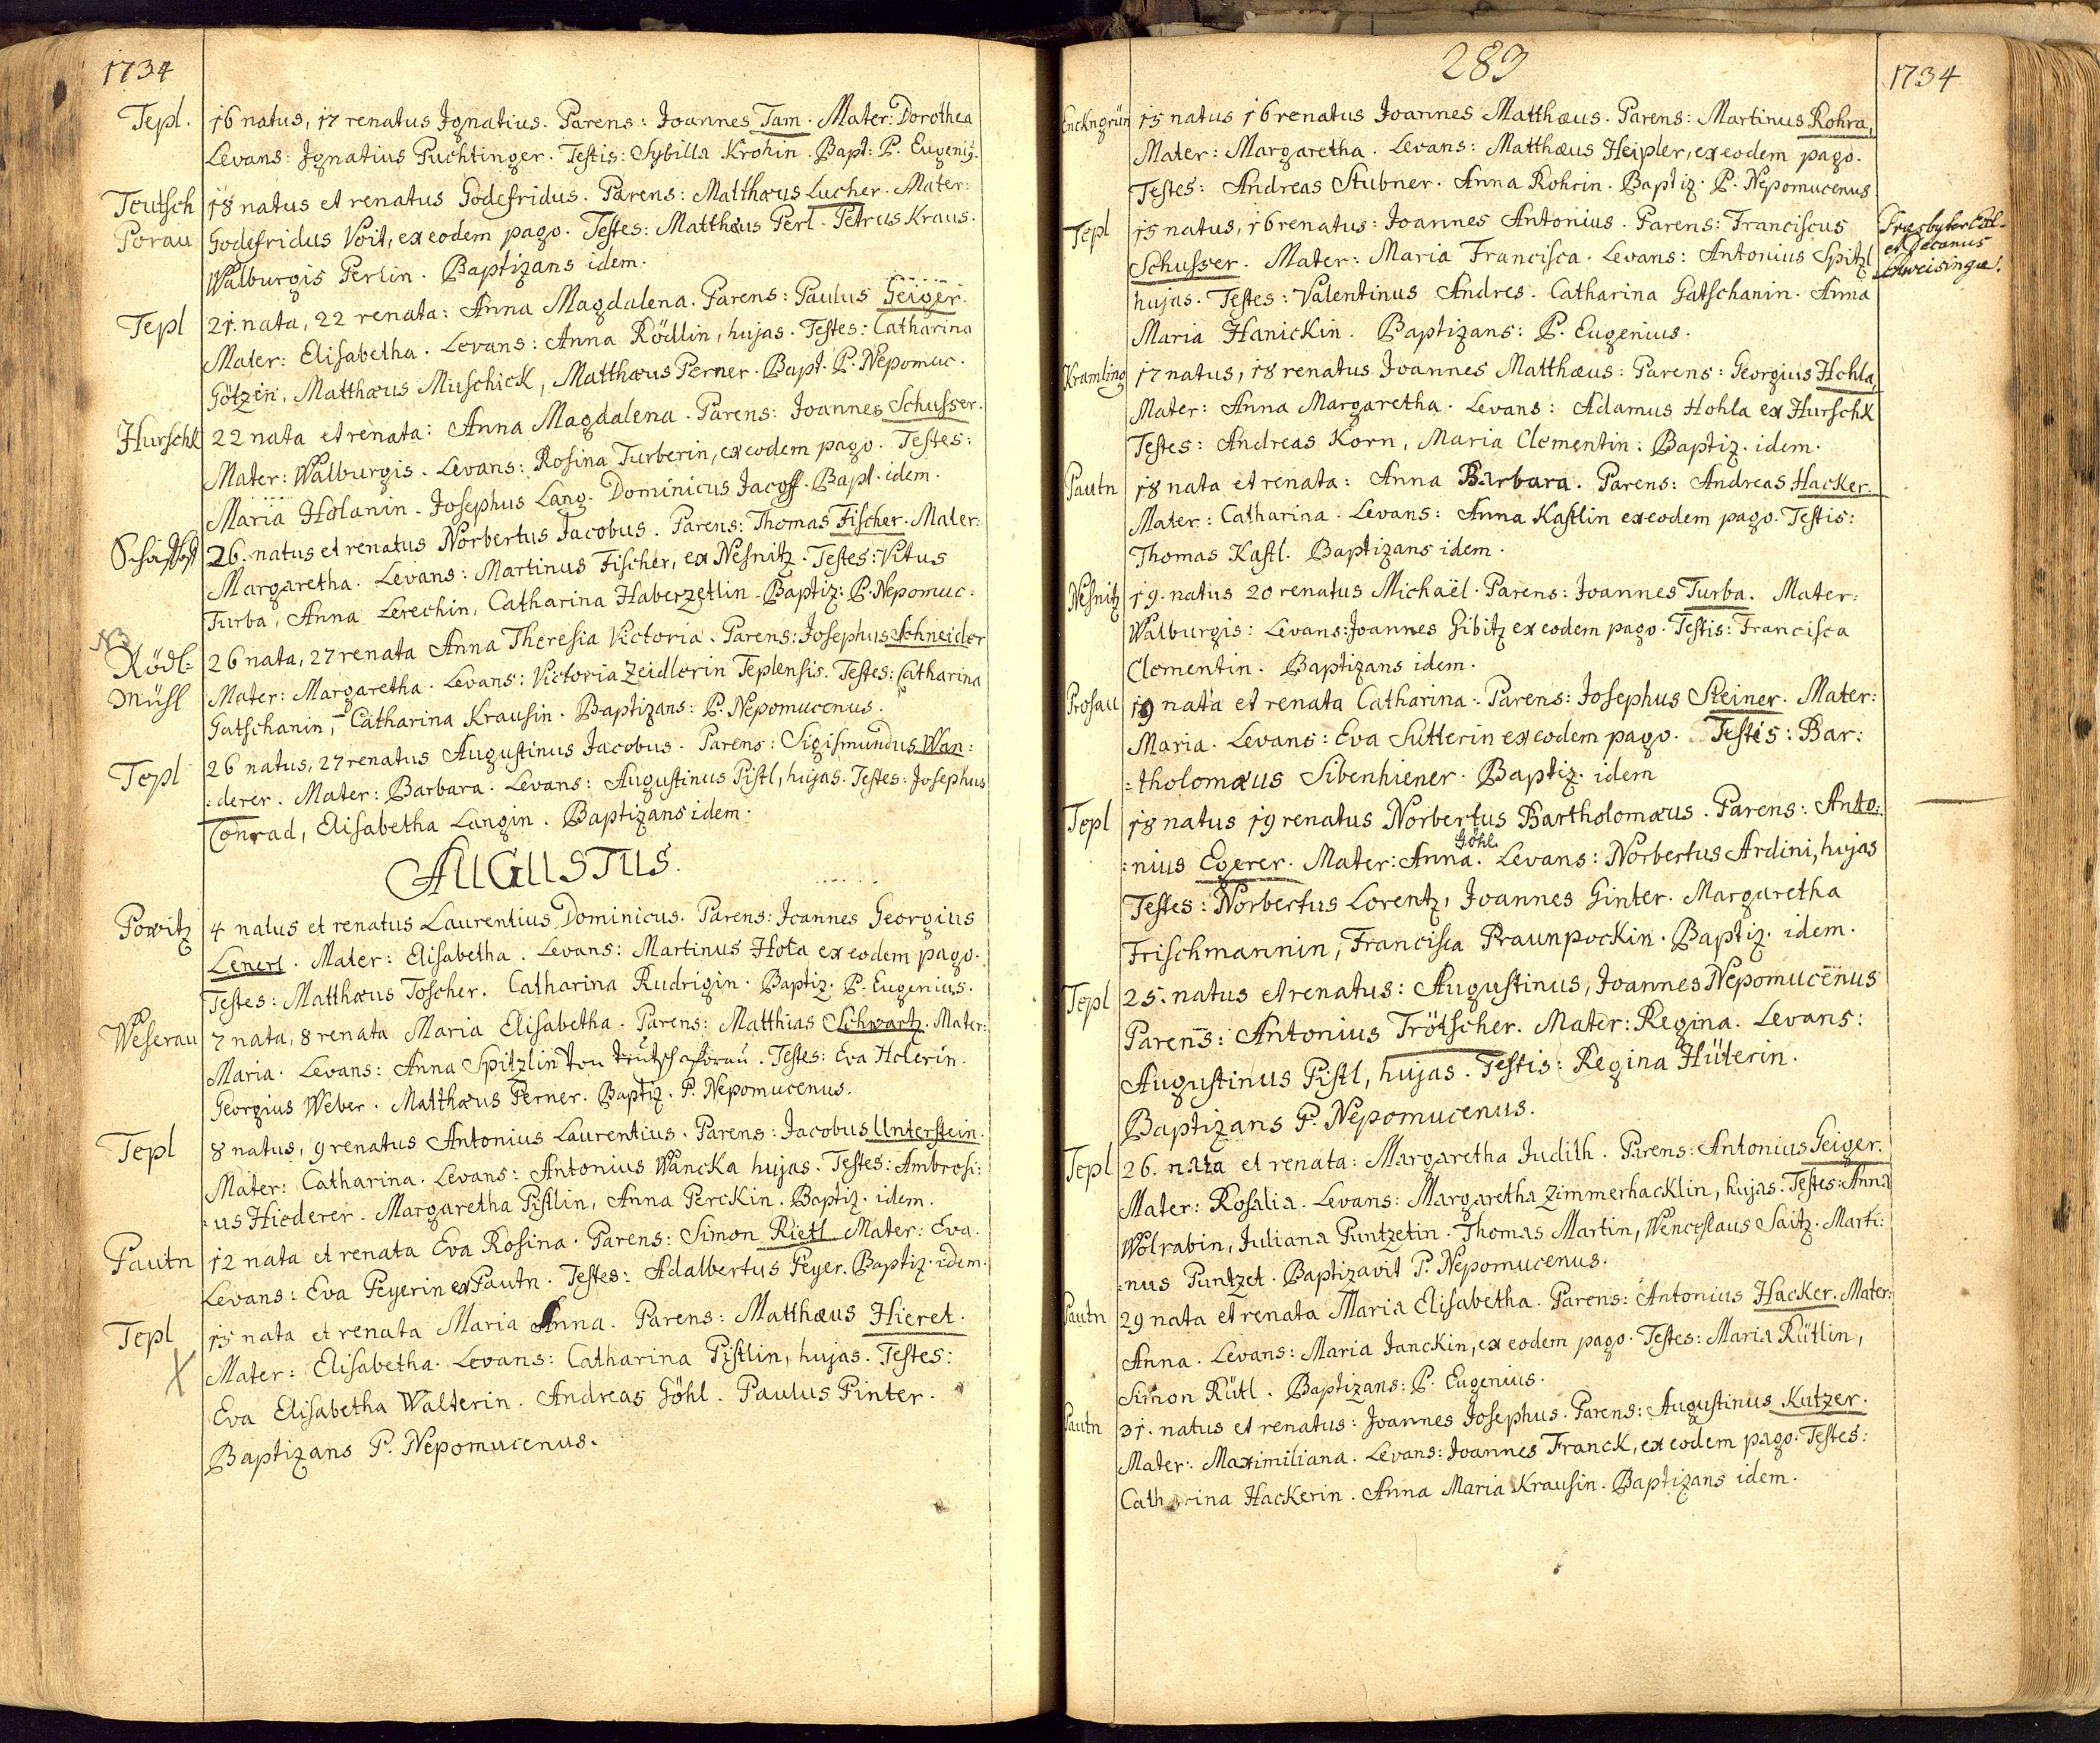 1734
Tepl. 16 natus, 17 renatus Ignatius. Parens: Joannes Tam. Mater: Dorothea
Levans: Ignatius Puchtinger. Testis: Sybilla Krohin. Bapt: P. Eugenig.
Teutsch 18 natus et renatus Godefridus. Parens: Matthæus Lucher. Mater:
Porau Godefridus Voit, ex eodem pago. Testes: Matthæus Perl. Petrus Kraus.
Walburgis Perlin. Baptizans idem.
Tepl 21. nata, 22 renata: Anna Magdalena. Parens: Paulus Geiger.
Mater: Elisabetha. Levans: Anna Rödlin, hujas. Testes: Catharina
Götzin, Matthæus Muschick, Matthæus Perner. Bapt. P. Nepomuc.
Hurschk 22 nata et renata: Anna Magdalena. Parens: Joannes Schusser.
Mater: Walburgis. Levans: Rosina Turberin, ex eodem pago. Testes:
Maria Holanin. Josephus Lang. Dominicus Jacoff. Bapt. idem.
26. natus et renatus Norbertus Jacobus. Parens: Thomas Fischer. Mater:
Margaretha. Levans: Martinus Fischer, ex Nesnitz. Testes: Vitus
Turba, Anna Lerechin, Catharina Haberzetlin. Baptiz: P. Nepomuc.
NB
Rödl= 26 nata, 27 renata Anna Theresia Victoria. Parens: Josephus Schneider
Mühl Mater: Margaretha. Levans: Victoria Zeidlerin Teplensis. Testes: Catharina
Gatschanin, Catharina Krausin. Baptizans: P. Nepomucenus.
Tepl 26 natus, 27 renatus Augustinus Jacobus. Parens: Sigismundus Wan:
:derer. Mater: Barbara. Levans: Augustinus Pistl, hujas. Testes: Josephus
Conrad, Elisabetha Langin. Baptizans idem.
AUGUSTUS.
Powitz 4 natus et renatus Laurentius Dominicus. Parens: Joannes Georgius
Lenert. Mater: Elisabetha. Levans: Martinus Hota ex eodem pago.
Testes: Matthæus Toscher. Catharina Rudrigin. Baptiz. P. Eugenius.
Weserau 7 nata, 8 renata Maria Elisabetha. Parens: Matthias Schwartz. Mater:
Maria. Levans: Anna Spitzlin von Teutschporau. Testes: Eva Holerin.
Georgius Weber. Matthæus Perner. Baptiz. P. Nepomucenus.
Tepl 8 natus, 9 renatus Antonius Laurentius. Parens: Jacobus Unterstein.
Mater: Catharina. Levans: Antonius Wancka hujas. Testes: Ambrosi:
:us Hiederer. Margaretha Pistlin, Anna Perckin. Baptiz. idem.
Pautn 12 nata et renata Eva Rosina. Parens: Simon Rietl Mater: Eva.
Levans: Eva Peyerin ex Pautn. Testes: Adalbertus Peyer. Baptiz. idem.
Tepl 15 nata et renata Maria Anna. Parens: Matthæus Hieret.
X Mater: Elisabetha. Levans: Catharina Pistlin, hujas. Testes:
Eva Elisabetha Walterin. Andreas Göhl. Paulus Pinter.
Baptizans P. Nepomucenus.
283
1734
Enckngrün 15 natus 16 renatus Joannes Matthæus. Parens: Martinus Rohra,
Mater: Margaretha. Levans: Matthæus Heipler, ex eodem pago.
Testes: Andreas Stubner. Anna Rohrin. Baptiz. P. Nepomucenus
Tepl 15 natus, 16 renatus: Joannes Antonius. Parens: Franciscus
Schusser. Mater: Maria Francisca. Levans: Antonius Spitzl
hujas. Testes: Valentinus Andres. Catharina Gatschanin. Anna
Maria Hanickin. Baptizans: P. Eugenius.
et Decanus
Kramling 17 natus, 18 renatus Joannes Matthæus: Parens: Georgius Hohla,
Mater: Anna Margaretha. Levans: Adamus Hohla ex Hurschk
Testes: Andreas Korn, Maria Clementin. Baptiz. idem.
Pautn 18 nata et renata: Anna Barbara. Parens: Andreas Hacker.
Mater: Catharina. Levans: Anna Kastlin ex eodem pago. Testis:
Thomas Kastl. Baptizans idem.
Nesnitz 19. natus 20 renatus Michaël. Parens: Joannes Turba. Mater:
Walburgis: Levans: Joannes Gibitz ex eodem pago. Testis: Francisca
Clementin. Baptizans idem.
Prosau 19 nata et renata Catharina. Parens: Josephus Steiner. Mater:
Maria. Levans: Eva Sutterin ex eodem pago. Testis: Bar:
:tholomæus Sibenhiener. Baptiz. idem
Tepl 18 natus 19 renatus Norbertus Bartholomæus. Parens: Anto:
Göhl.
:nius Egerer. Mater: Anna. Levans: Norbertus Ardini, hujas
Testes: Norbertus Lorentz, Joannes Ginter. Margaretha
Frischmannin, Francisca Praunpockin. Baptiz. idem.
Tepl 25. natus et renatus: Augustinus, Joannes Nepomucenus
Parens: Antonius Trötscher. Mater: Regina. Levans:
Augustinus Pistl, hujas. Testis: Regina Hüterin.
Baptizans P. Nepomucenus.
Tepl 26. nata et renata: Margaretha Judith. Parens: Antonius Geiger.
Mater: Rosalia. Levans: Margaretha Zimmerhacklin, hujas. Testes: Anna
Wolrabin, Juliana Puntzetin. Thomas Martin, Wenceslaus Saitz. Marti:
:nus Puntzet. Baptizavit P. Nepomucenus.
Pautn 29 nata et renata Maria Elisabetha. Parens: Antonius Hacker. Mater:
Anna. Levans: Maria Janckin, ex eodem pago. Testes: Maria Rütlin,
Simon Rütl. Baptizans: P. Eugenius.
Pautn 31. natus et renatus: Joannes Josephus. Parens: Augustinus Kutzer.
Mater: Maximiliana. Levans: Joannes Franck, ex eodem pago. Testes:
Catharina Hackerin. Anna Maria Krausin. Baptizans idem.